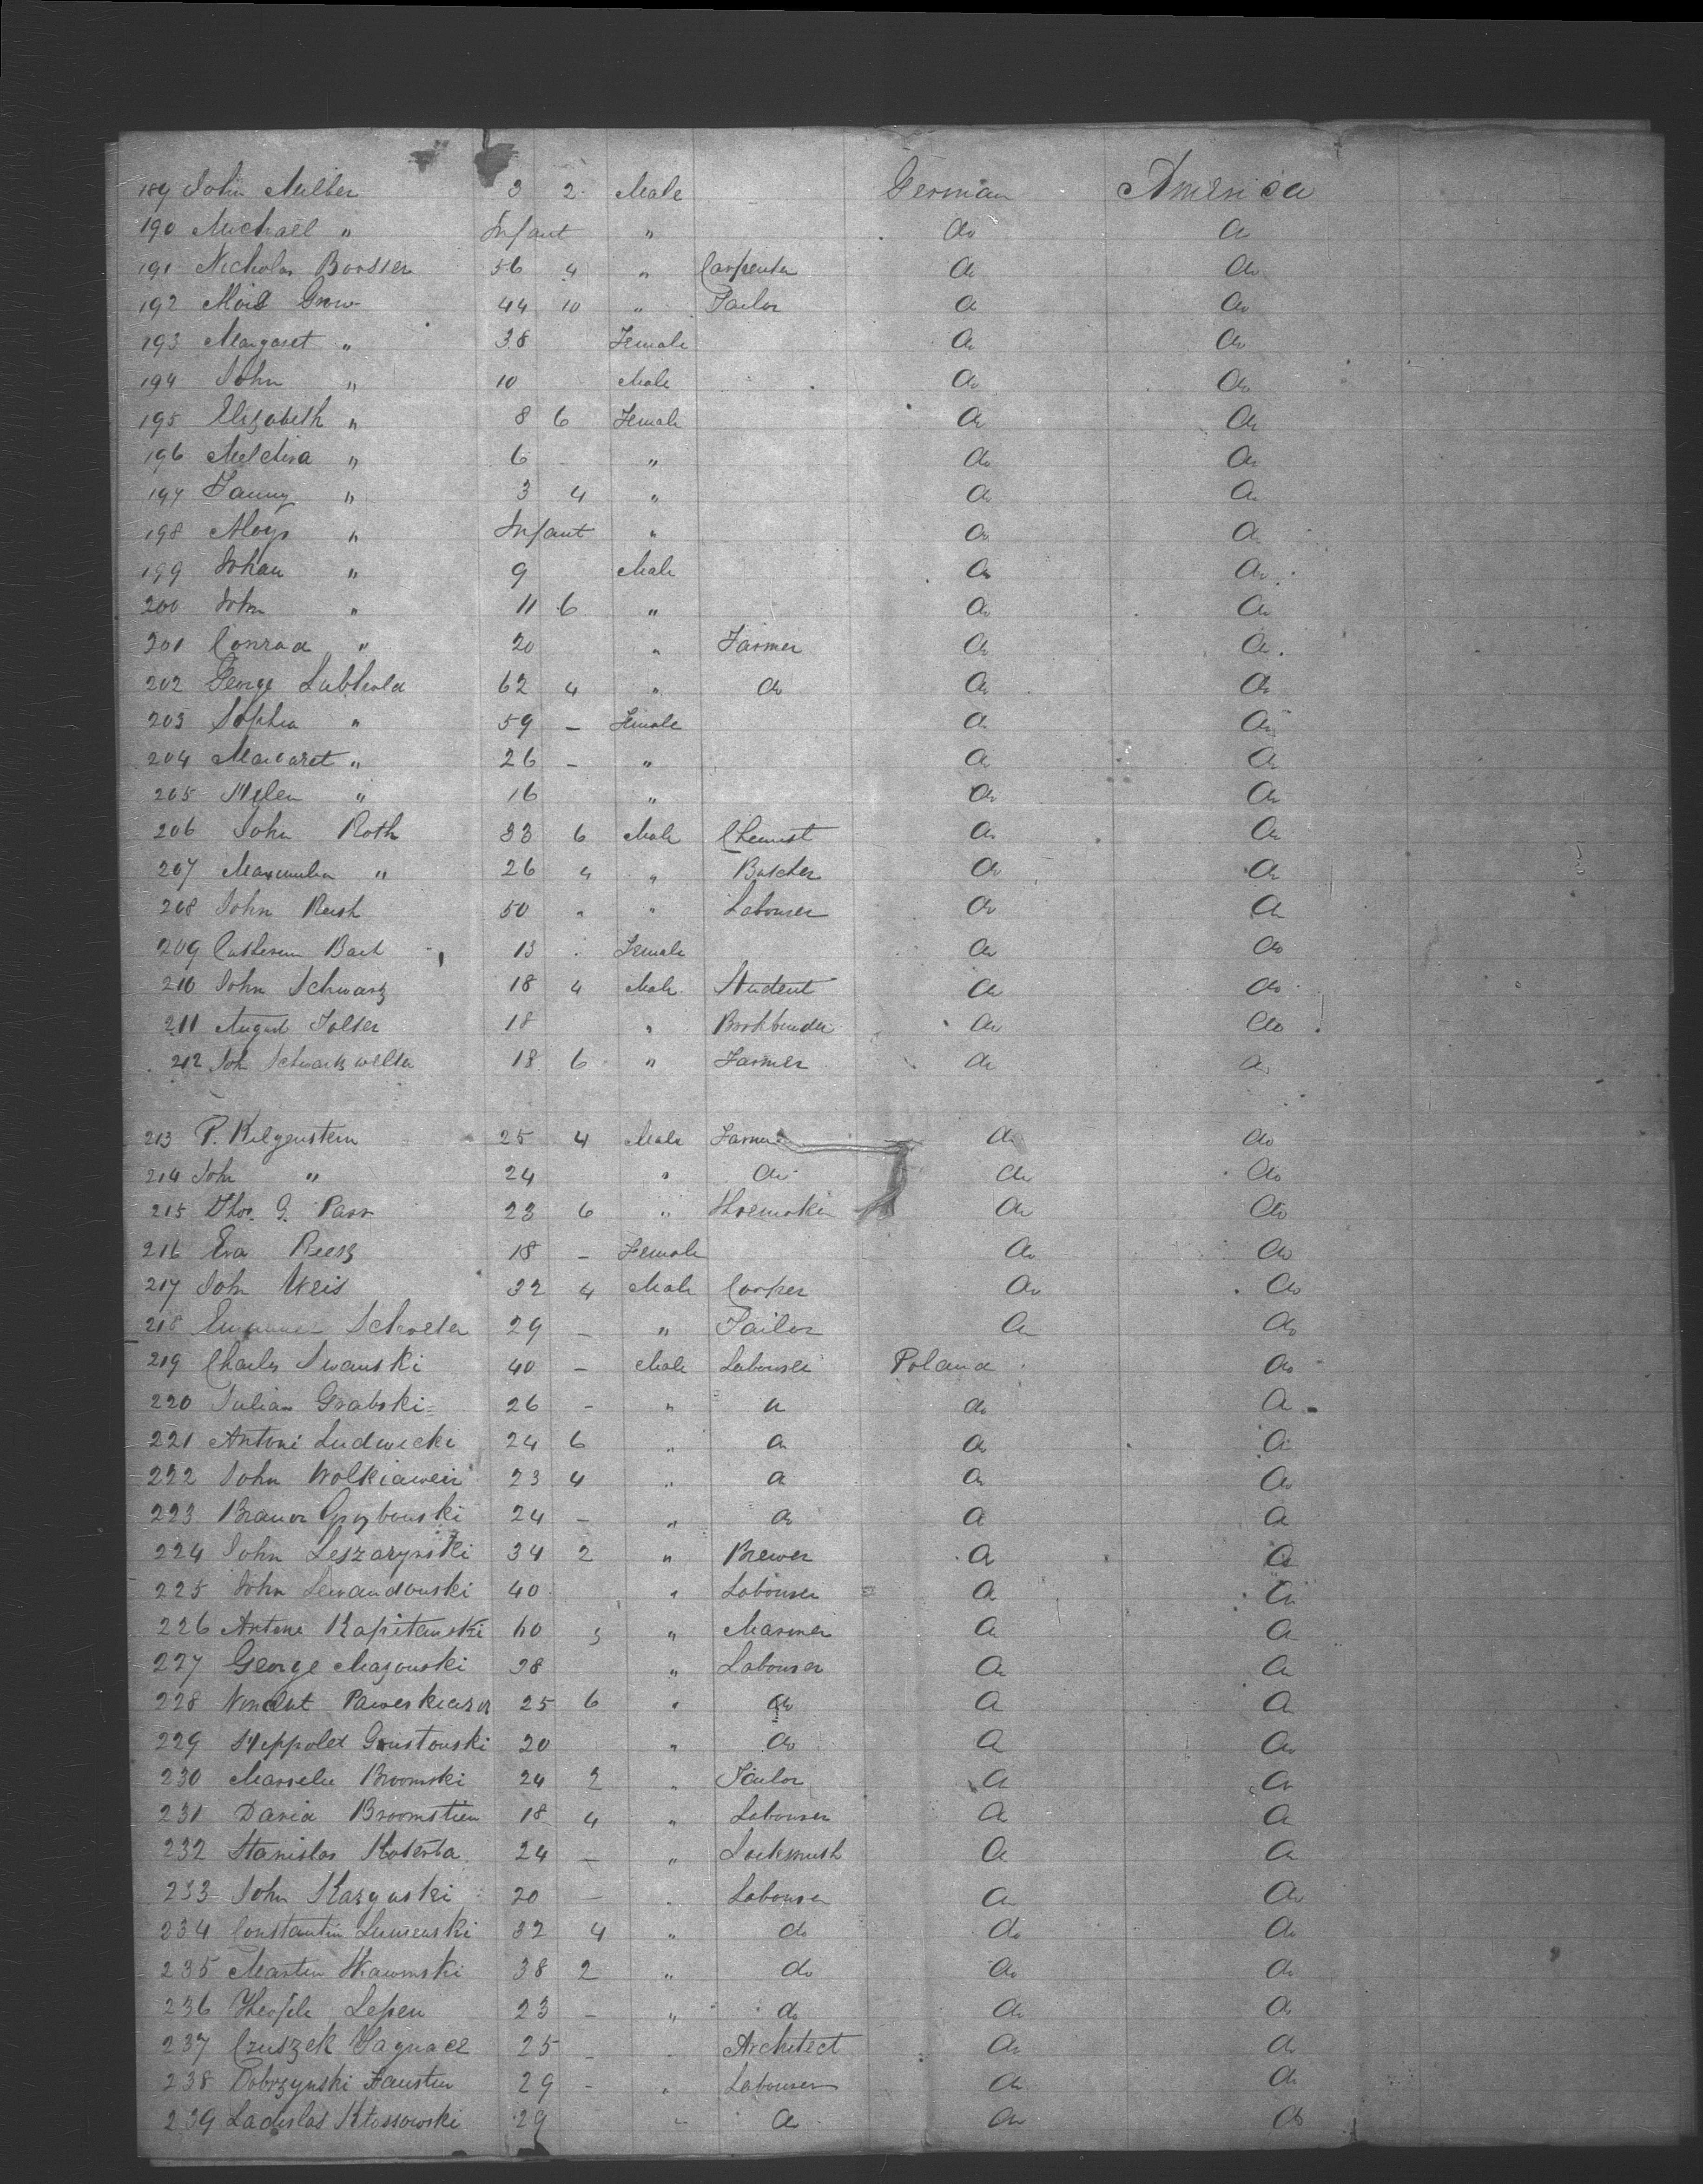 189 John Miller 3 2 Male German America
190 Michael " Infant " do do
191 Nicholas 56 4 " Carpenter do do
192 44 10 " Tailor do do
193 Margaret " 38 Female do do
194 John " 10 Male do do
195 Elizabeth " 8 6 Female do do
196 " 6 " do do
197 Fanny " 3 4 " do do
198 Aloys " Infant " do do
199 Johan " 9 Male do do
200 John " 11 6 " do do
201 Conrad " 20 " Farmer do do
202 George 62 4 " do do do
203 Sophia " 59 – Female do do
204 Margaret " 26 – " do do
205 Helen " 16 " do do
206 John Roth 33 6 Male Chemist do do
207 " 26 4 " Butcher do do
208 John 50 " " Labourer do do
209 13 Female do do
210 John Schwarz 18 4 Male Student do do
211 August 18 " Bookbinder do do
212 Joh Schwartzwelter 18 6 " Farmer do do
213 P. Kilgenstein 25 4 Male Farmer do do
214 Joh " 24 " do do do
215 Thos. G. Parr 23 6 " do do
216 Eva Reesz 18 – Female do do
217 Joh Weis 32 4 Male Cooper do do
218 29 – " Tailor do do
219 Charles Iwanski 40 – Male Labourer Poland do
220 Julian Grabski 26 – " do do do
221 Antoni Ludwicki 24 6 " do do do
222 John 23 4 " do do do
223 24 – " do do do
224 John Leszarynski 34 2 " Brewer do do
225 John Lewandouski 40 " Labourer do do
226 Antone Kapitanski " Mariner do do
227 George Mazouski 38 " Labourer do do
228 Vincent 25 6 " do do do
229 20 " do do do
230 Broomski 24 2 " Tailor do do
231 David Broomstien 18 4 " Labourer do do
232 Stanislas Koterba 24 – " Locksmith do do
233 John 20 – " Labourer do do
234 Constantin 32 4 " do do do
235 Martin 38 2 " do do do
236 Lepen 23 – " do do do
237 25 – Architect do do
238 Dobrzynski Faustin 29 – " Labourer do do
239 Ladislas Klossowski 29 " do do do